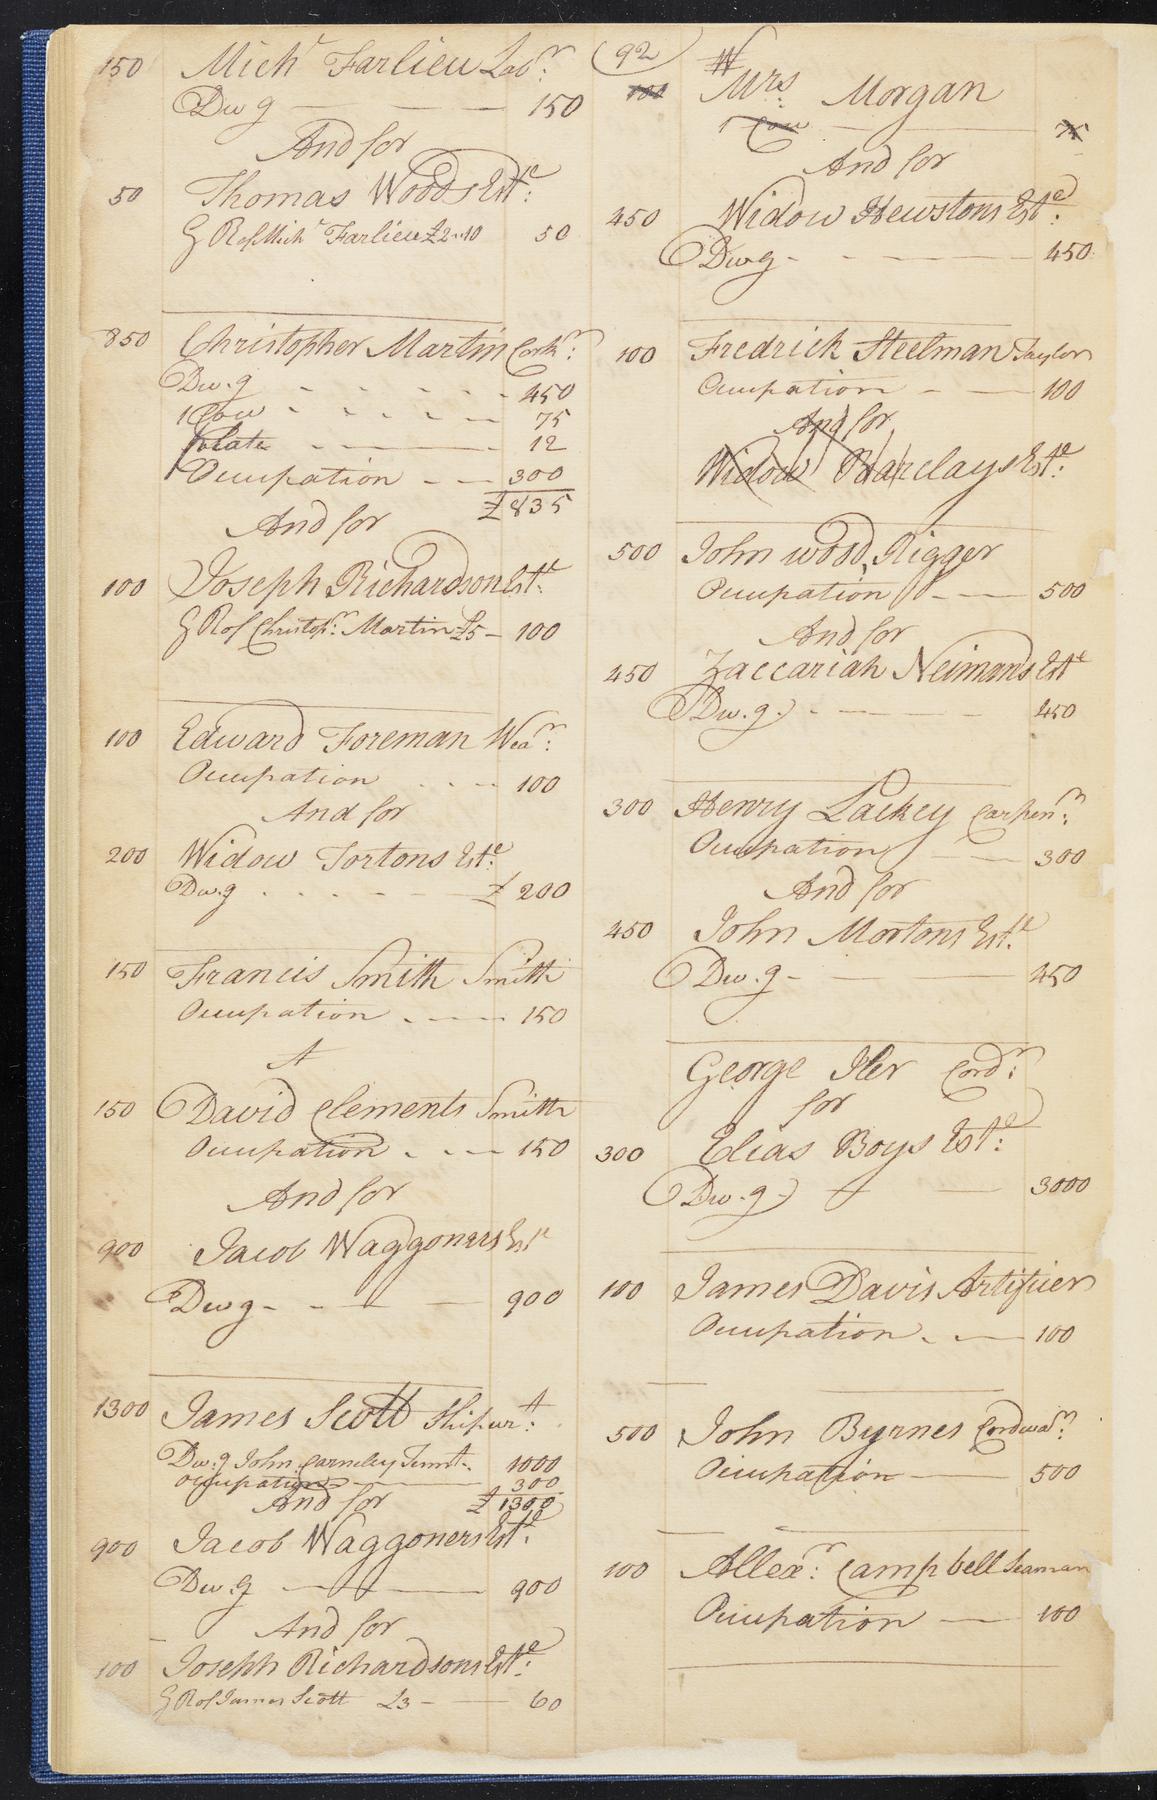 (92)
150 Michl Farlieu Labr:
Dwg 150
And for
50 Thomas Woods Este:
G R of Michl Farlieu £2..10 50
850 Christopher Martin Cork:
Dw.g 450
1 Cow 75
Plate 12
Occupation 300
£835
And for
100 Joseph Richardson Este:
G R of Christopr: Martin £5 100
100 Edward Foreman Wear:
Occupation 100
And for
200 Widow Tortons Este:
Dw.g £ 200
150 Francis Smith Smith
Occupation 150
A
150 David Clements Smith
Occupation 150
And for
900 Jacob Waggoners Este
Dwg 900
1300 James Scott Shipwt:
Dw.g John Carneley Tennt. 1000
Occupation 300
And for £1300
900 Jacob Waggoners Este:
Dw.g 900
And for
100 Joseph Richardsons Este:
G R of James Scott £3 60
100 Mrs: Morgan
1 Cow 75
And for
450 Widow Hewstons Este:
Dwg 450
100 Fredrick Steelman Taylor
Occupation 100
And for
Widow Barclays Este:
500 John Wood, Rigger
Occupation 500
And for
450 Zaccariah Neimans Este
Dw.g. 450
300 Henry Lackey Carpenr:
Occupation 300
And for
450 John Mortons Este.
Dw.g 450
George Iler Cordr:
for
300 Elias Boys Este:
Dw.g 3000
100 James Davis Artificier
Occupation 100
500 John Byrnes Cordwar:
Occupation 500
100 Allexr: Campbell Seaman
Occupation 100